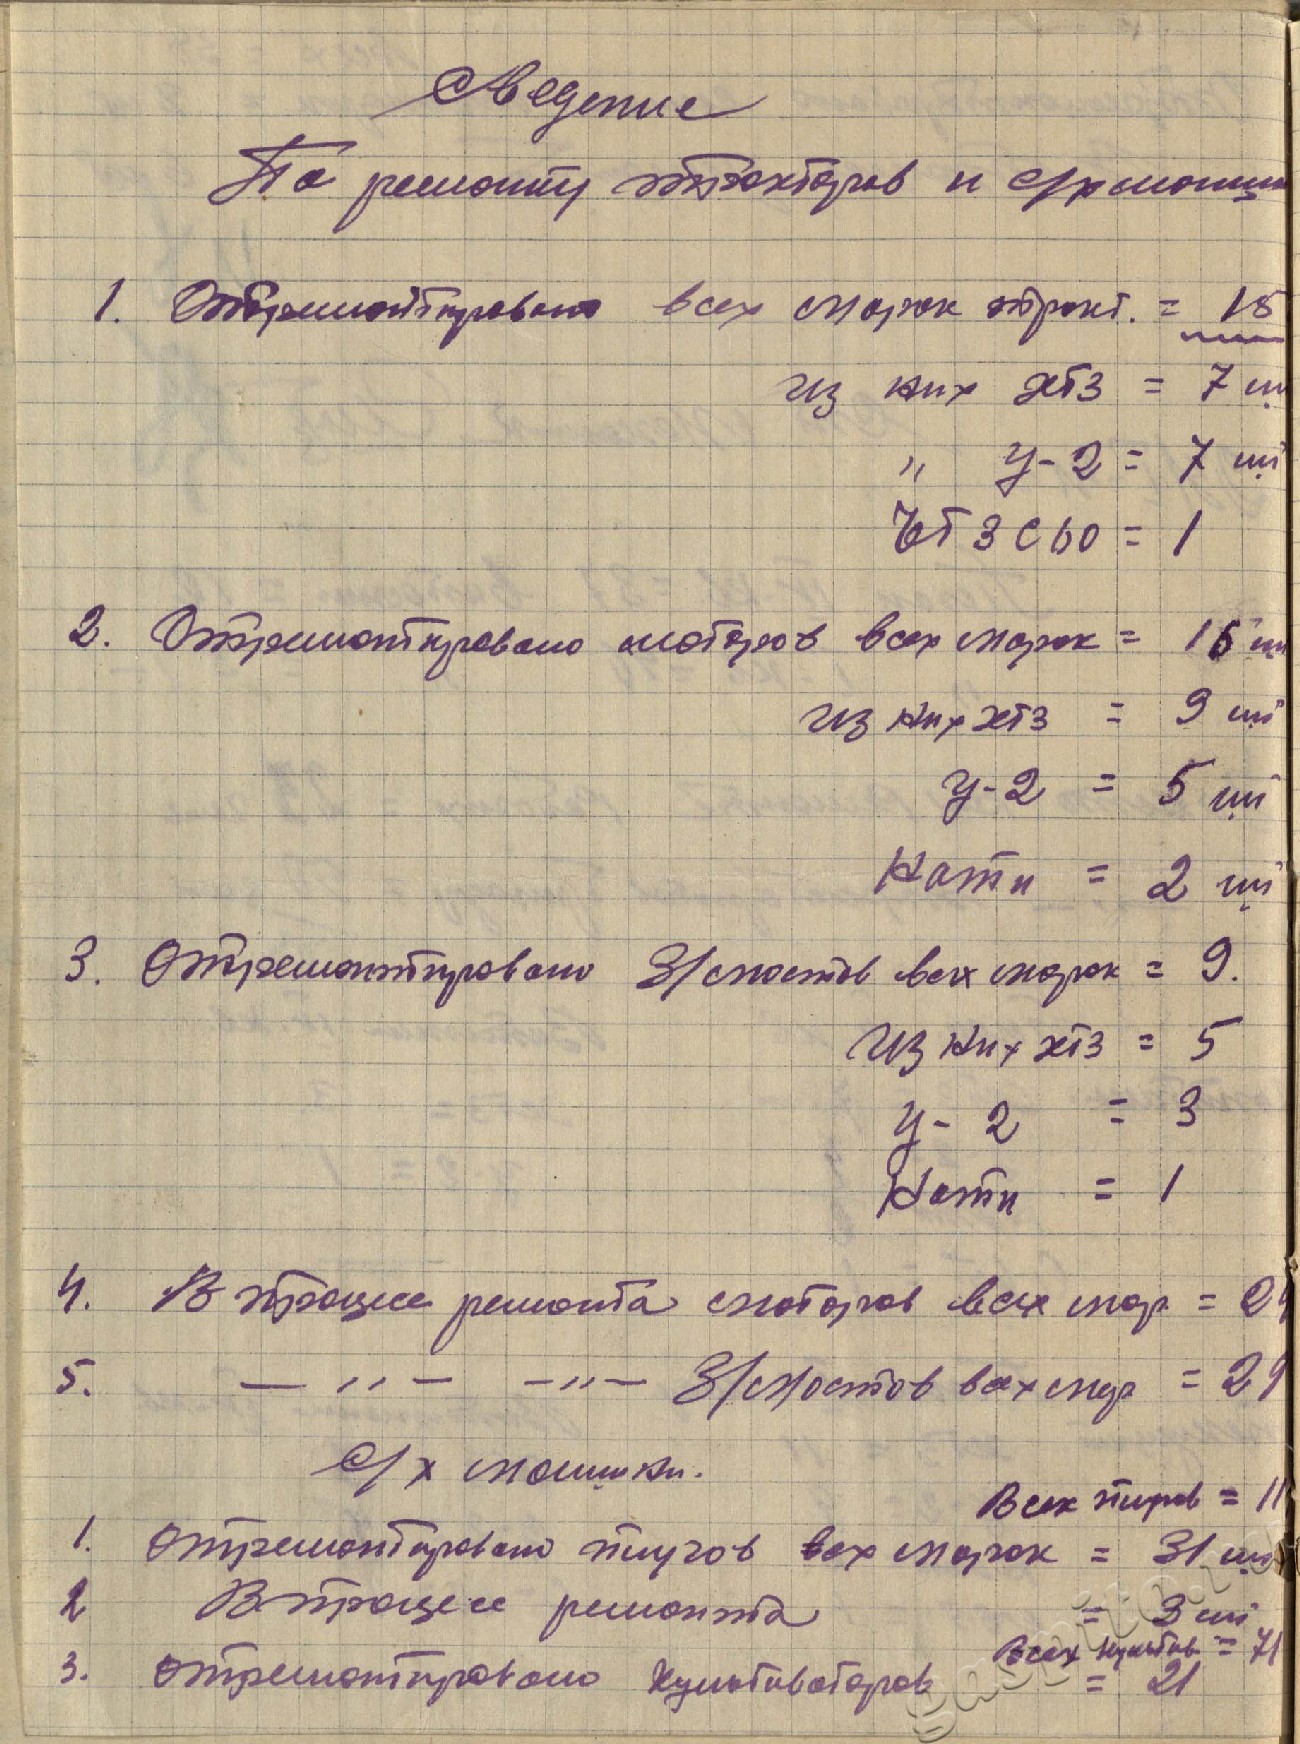 Сведение
По ремонту тракторов и с/х машин
1. Отремонтировано всех марок тракт. = 15
из них ХТЗ = 7 ш
" У-2 = 7 шт
ЧТЗ С60 = 1
2. Отремонтировано моторов всех марок = 16 шт
из них ХТЗ = 9 шт
У-2 = 5 шт
Кати = 2 шт
3. Отремонтировано З/мостов всех марок = 9.
из них ХТЗ = 5
У-2 = 3
Кати = 1
4. В процесе ремонта моторов всех мар = 24
5. — " — — " — З/мостов всех мар = 29
С/х машини.
Всех плугов = 11
1. Отремонтировано плугов всех марок = 31 шт
2 В процесе ремонта = 3 шт
Всех культив = 71
3. Отремонтировано Культиваторов = 21
gasrito.ru